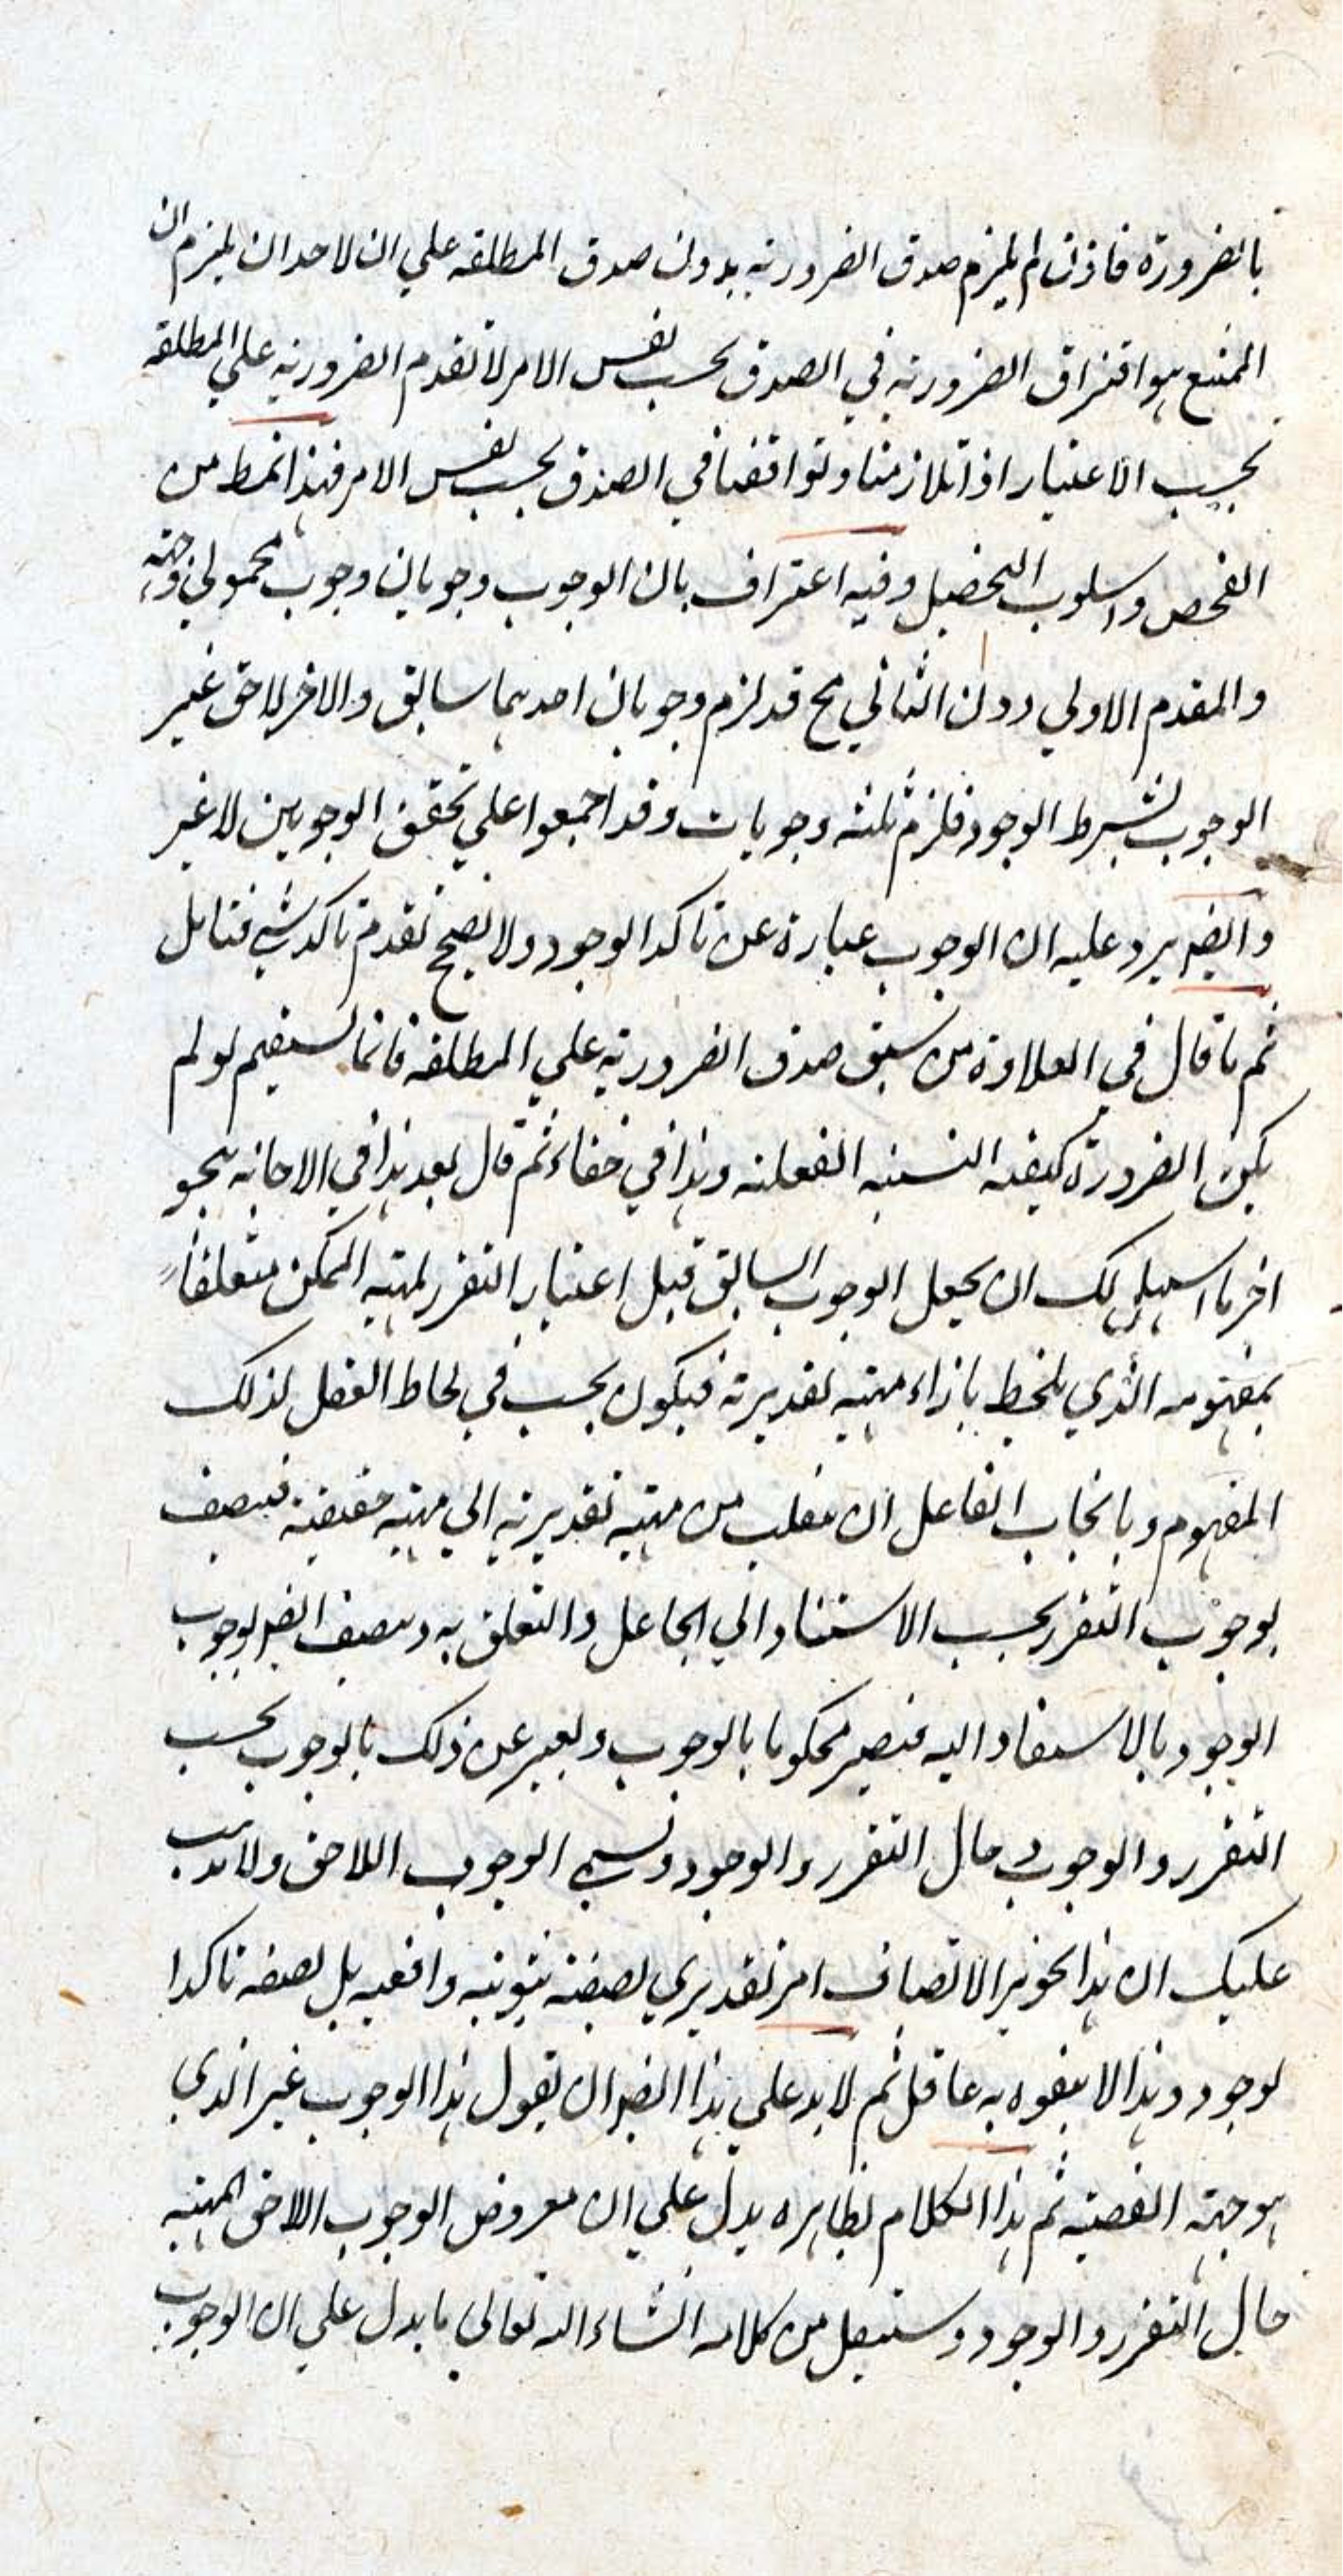 بالضرورة فاذن لم يلزم صدق الضرورية بدون صدق المطلقه علي ان لاحد ان يلزم ان
الممتنع هو افتراق الضرورية في الصدق بحسب نفس الامر لا تقدم الضرورية علي المطلقة
بحسب الاعتبار اذا تلازمتا وتوافقتا في الصدق بحسب نفس الامر فهذا نمط من
الفحص واسلوب التحصيل وفيه اعتراف بان الوجوب وجوبان وجوب محمولي وجهة
والمقدم الاولي دون الثاني مح قد لزم وجوبان احدهما سابق والاخر لاحق غير
الوجوب بشرط الوجود فلزم ثلثه وجوبات وقد اجمعوا علي تحقق الوجوبين لا غير
وايضا يرد عليه ان الوجوب عبارة عن تاكد الوجود ولا يصح تقدم تاكد شي فتامل
ثم ما قال في العلاوة من سبق صدق الضرورية علي المطلقه فانما يستقيم لو لم
يكن الضرورة كيفيه النسبه الفعليه وهذا في خفاء ثم قال بعد هذا في الاجابه بنحو
اخر ما سبيل لك ان يجعل الوجوب السابق قبل اعتبار التقرر لمهيه الممكن متعلقا
بمفهومه الذي يلحظ بازاء مهيه تقديرية فيكون بحسب في لحاظ العقل لذلك
المفهوم وبايجاب الفاعل ان ينقلب من مهيه تقديريه الي مهيه حقيقيه فيتصف
بوجوب التقرر بحسب الاستناد الي الجاعل والتعلق به ويتصف ايضا بوجوب
الوجود بالاستناد اليه فيصير محكوما بالوجوب ويعبر عن ذلك بالوجوب بحسب
التقرر والوجوب حال التقرر والوجود ويسمي الوجوب اللاحق ولا يذهب
عليك ان هذا تجويز الاتصاف امر تقديري بصفة ثبوتيه واقعيه بل بصفه تاكد ا
لوجود وهذا لا يتفوه به عاقل ثم لابد علي هذا ايضا ان يقول هذا الوجوب غير الذي
هو جهة القضيه ثم هذا الكلام بظاهره يدل علي ان معروض الوجوب اللاحق المهيه
حال التقرر والوجود وسننقل من كلامه انشاء الله تعالي ما يدل علي ان الوجوب